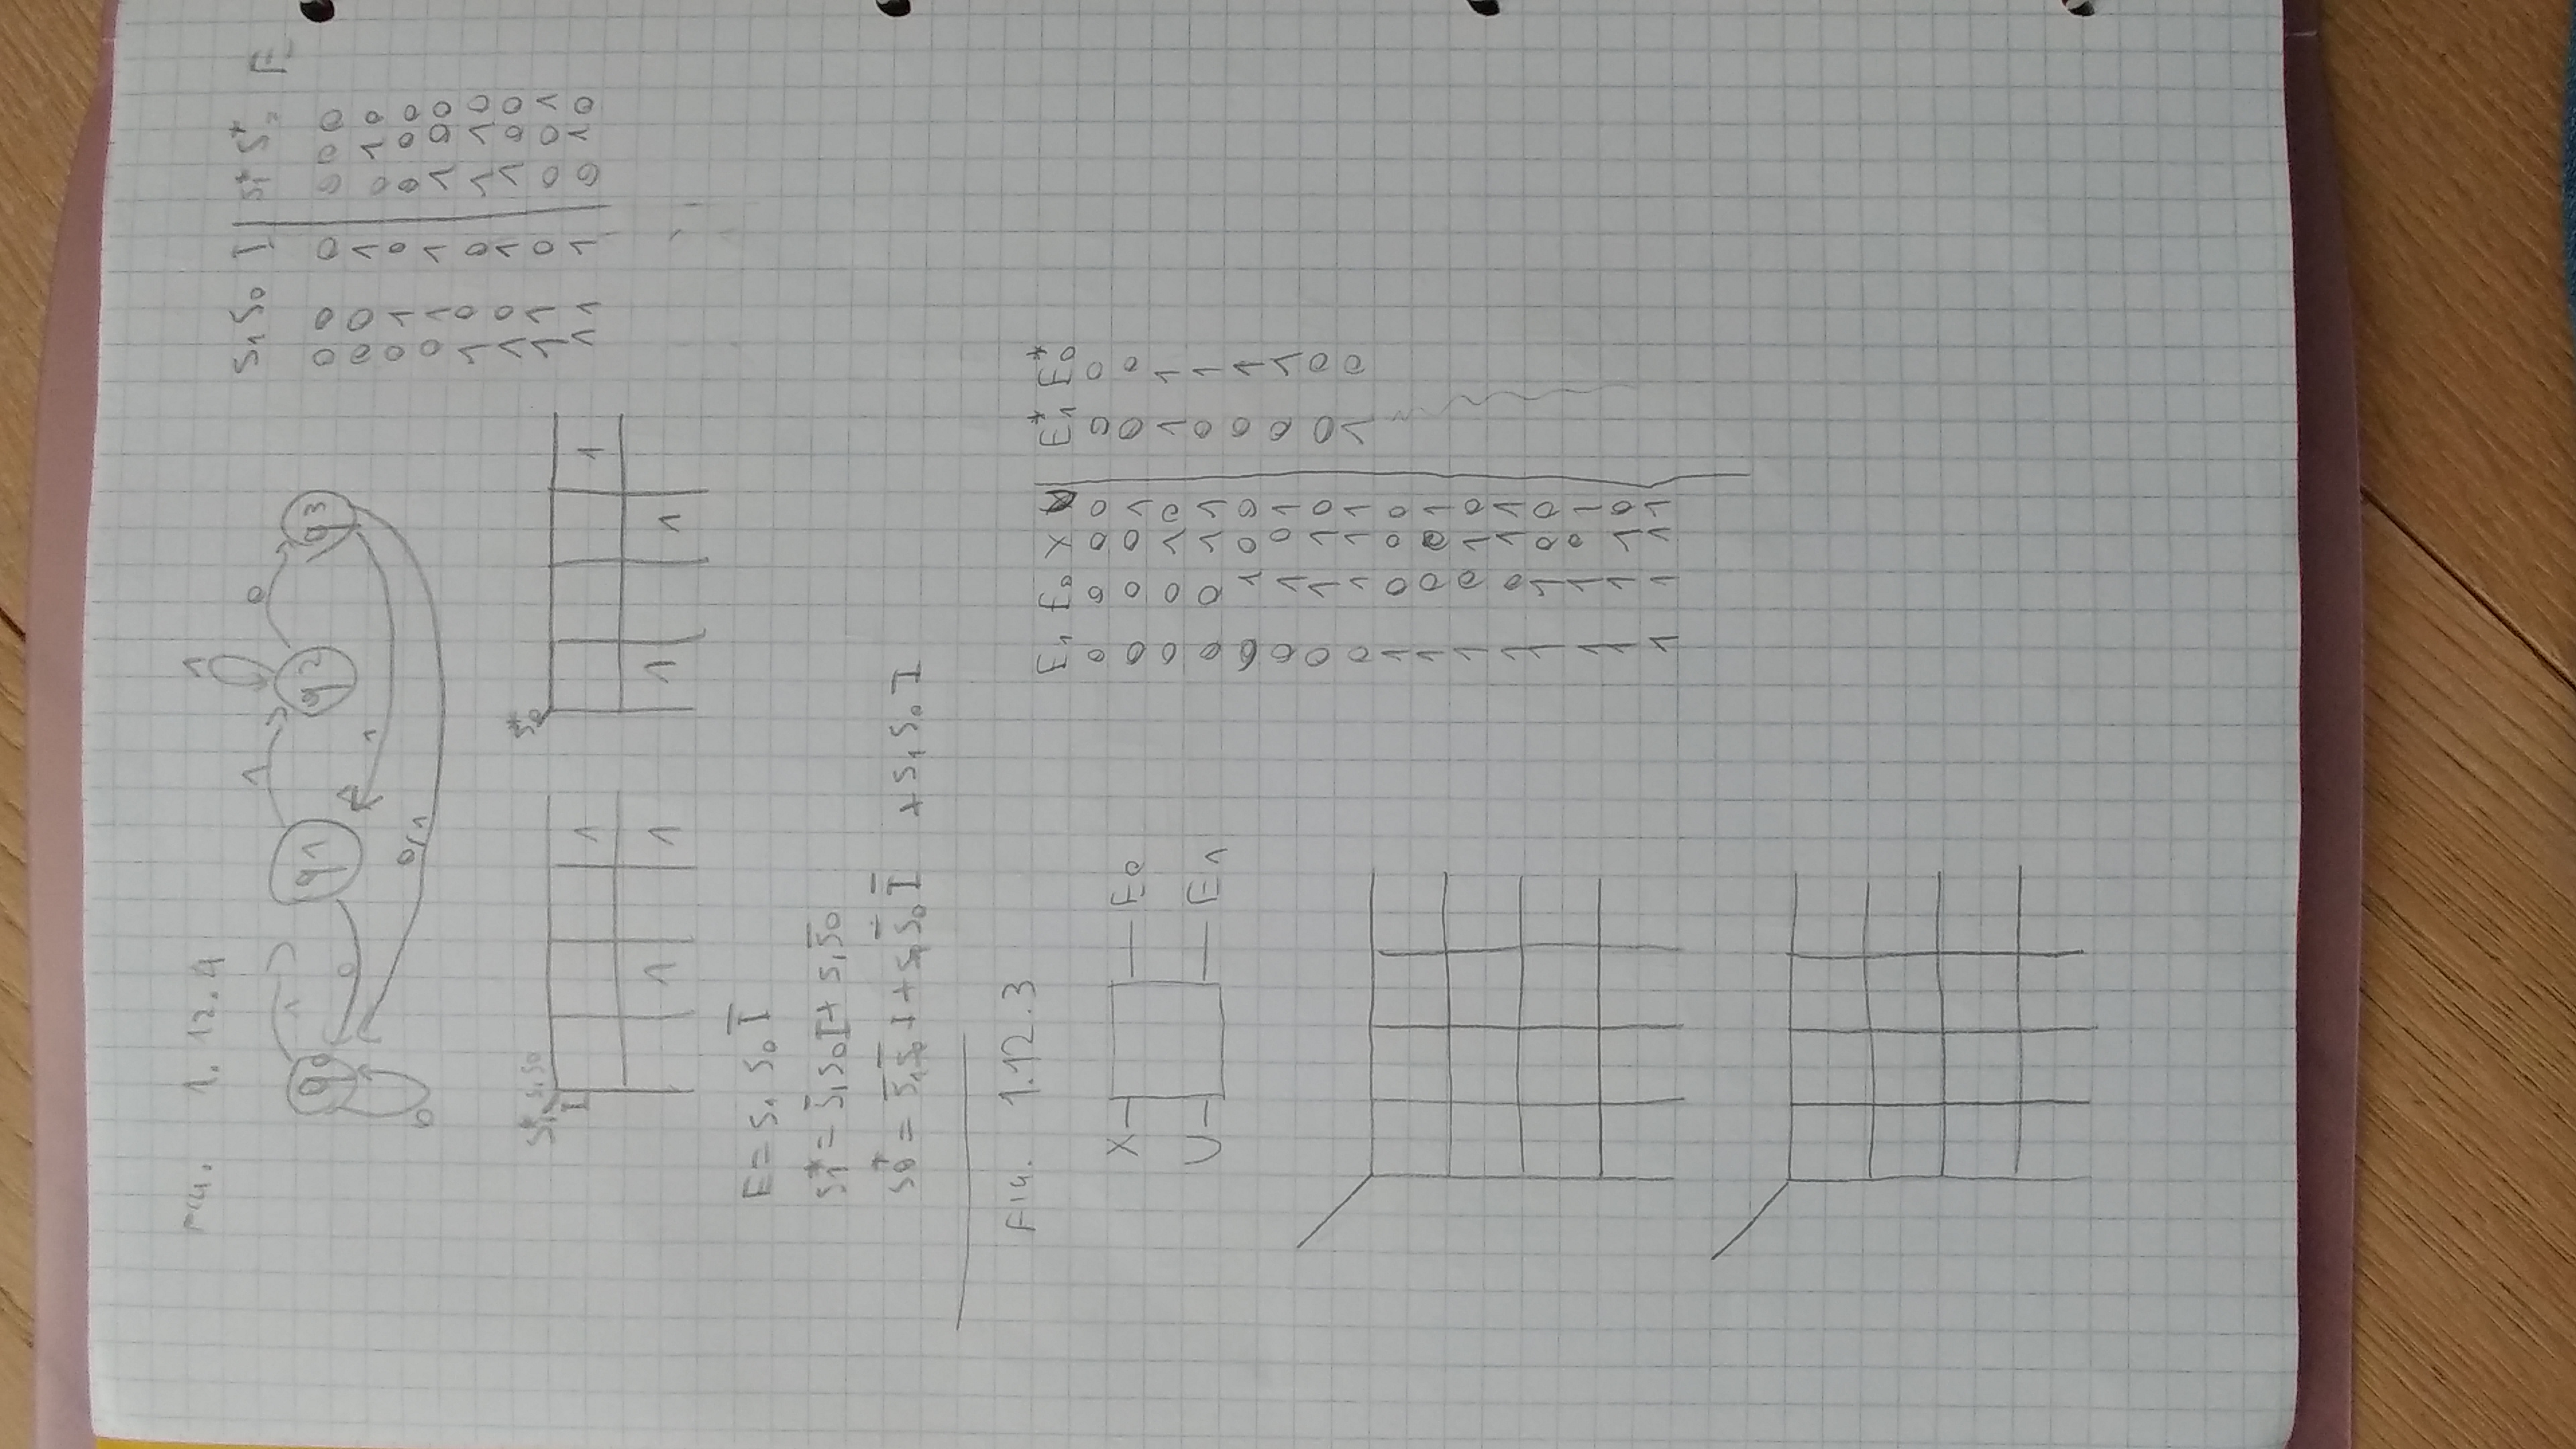 FIG. 1.12.4
1
1 1 0
q0 q1 q2 q3
0 1
0 0/1
S1 S0 I S1* S0* E
0 0 0 0 0 0
0 0 1 0 1 0
0 1 0 0 0 0
0 1 1 1 0 0
1 0 0 1 1 0
1 0 1 1 0 0
1 1 0 0 0 1
1 1 1 0 1 0
S1* S1S0 S0*
I 1 1
1 1 1 1
E = S1 S0 I̅
S1* = S̅1 S0 I + S1 S̅0
S0* = S̅1 S̅0 I + S1 S̅0 I̅ + S1 S0 I
FIG. 1.12.3
X E0
U E1
E1 E0 X U E1* E0*
0 0 0 0 0 0
0 0 0 1 0 0
0 0 1 0 1 1
0 0 1 1 0 1
0 1 0 0 0 1
0 1 0 1 0 1
0 1 1 0 0 0
0 1 1 1 1 0
1 0 0 0
1 0 0 1
1 0 1 0
1 0 1 1
1 1 0 0
1 1 0 1
1 1 1 0
1 1 1 1